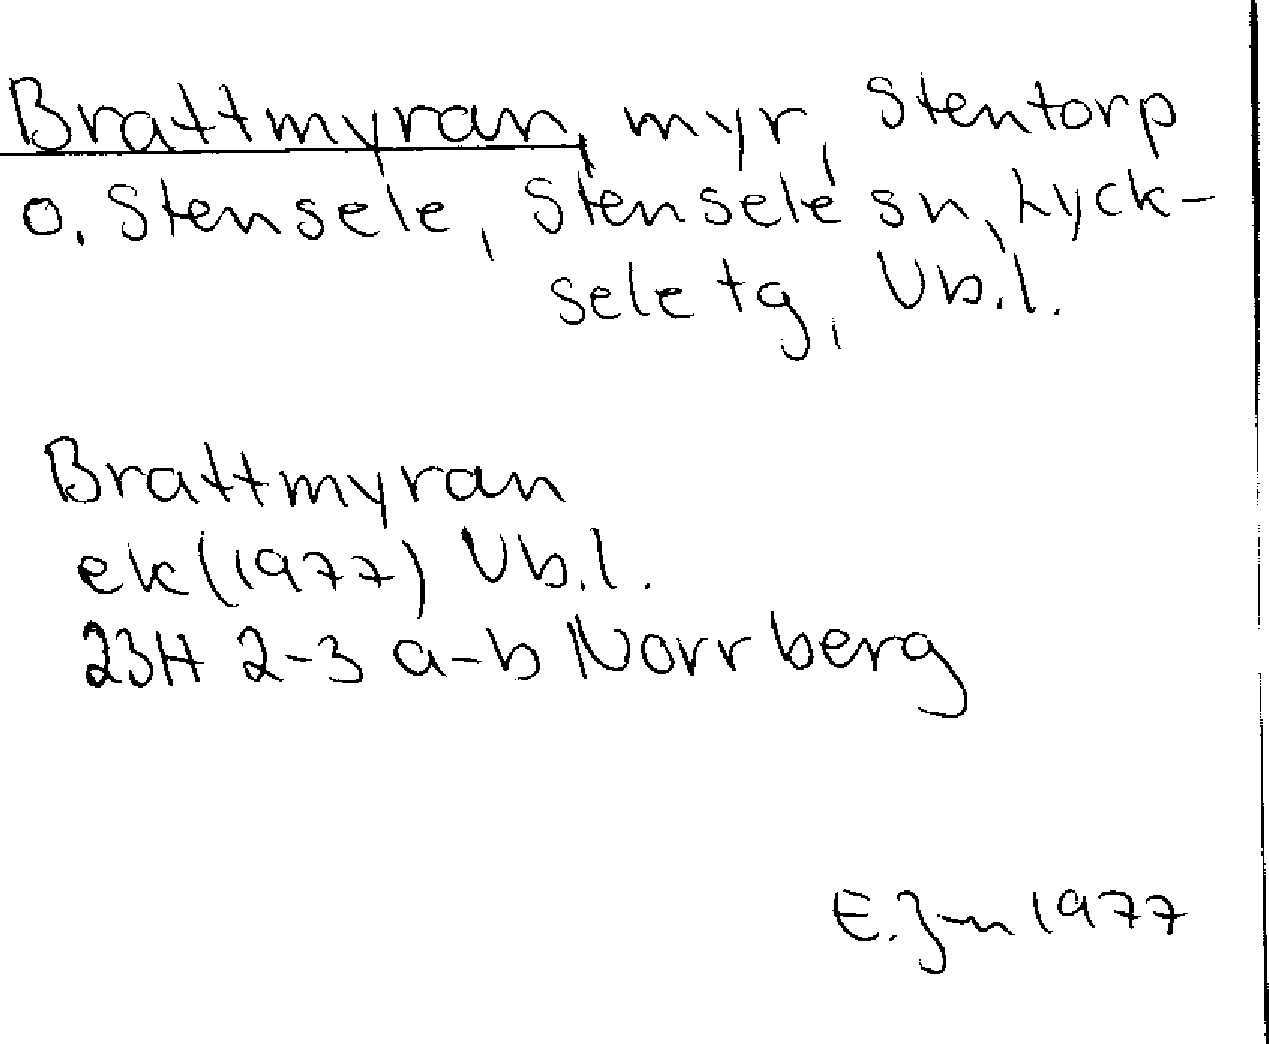 Brattmyran, myr, Stentorp
o. Stensele, Stensele sn, Lyck-
sele tg, Vb.l.
Brattmyran
ek (1977) Vb.l.
23H 2-3 a-b Norrberg
E. 1977